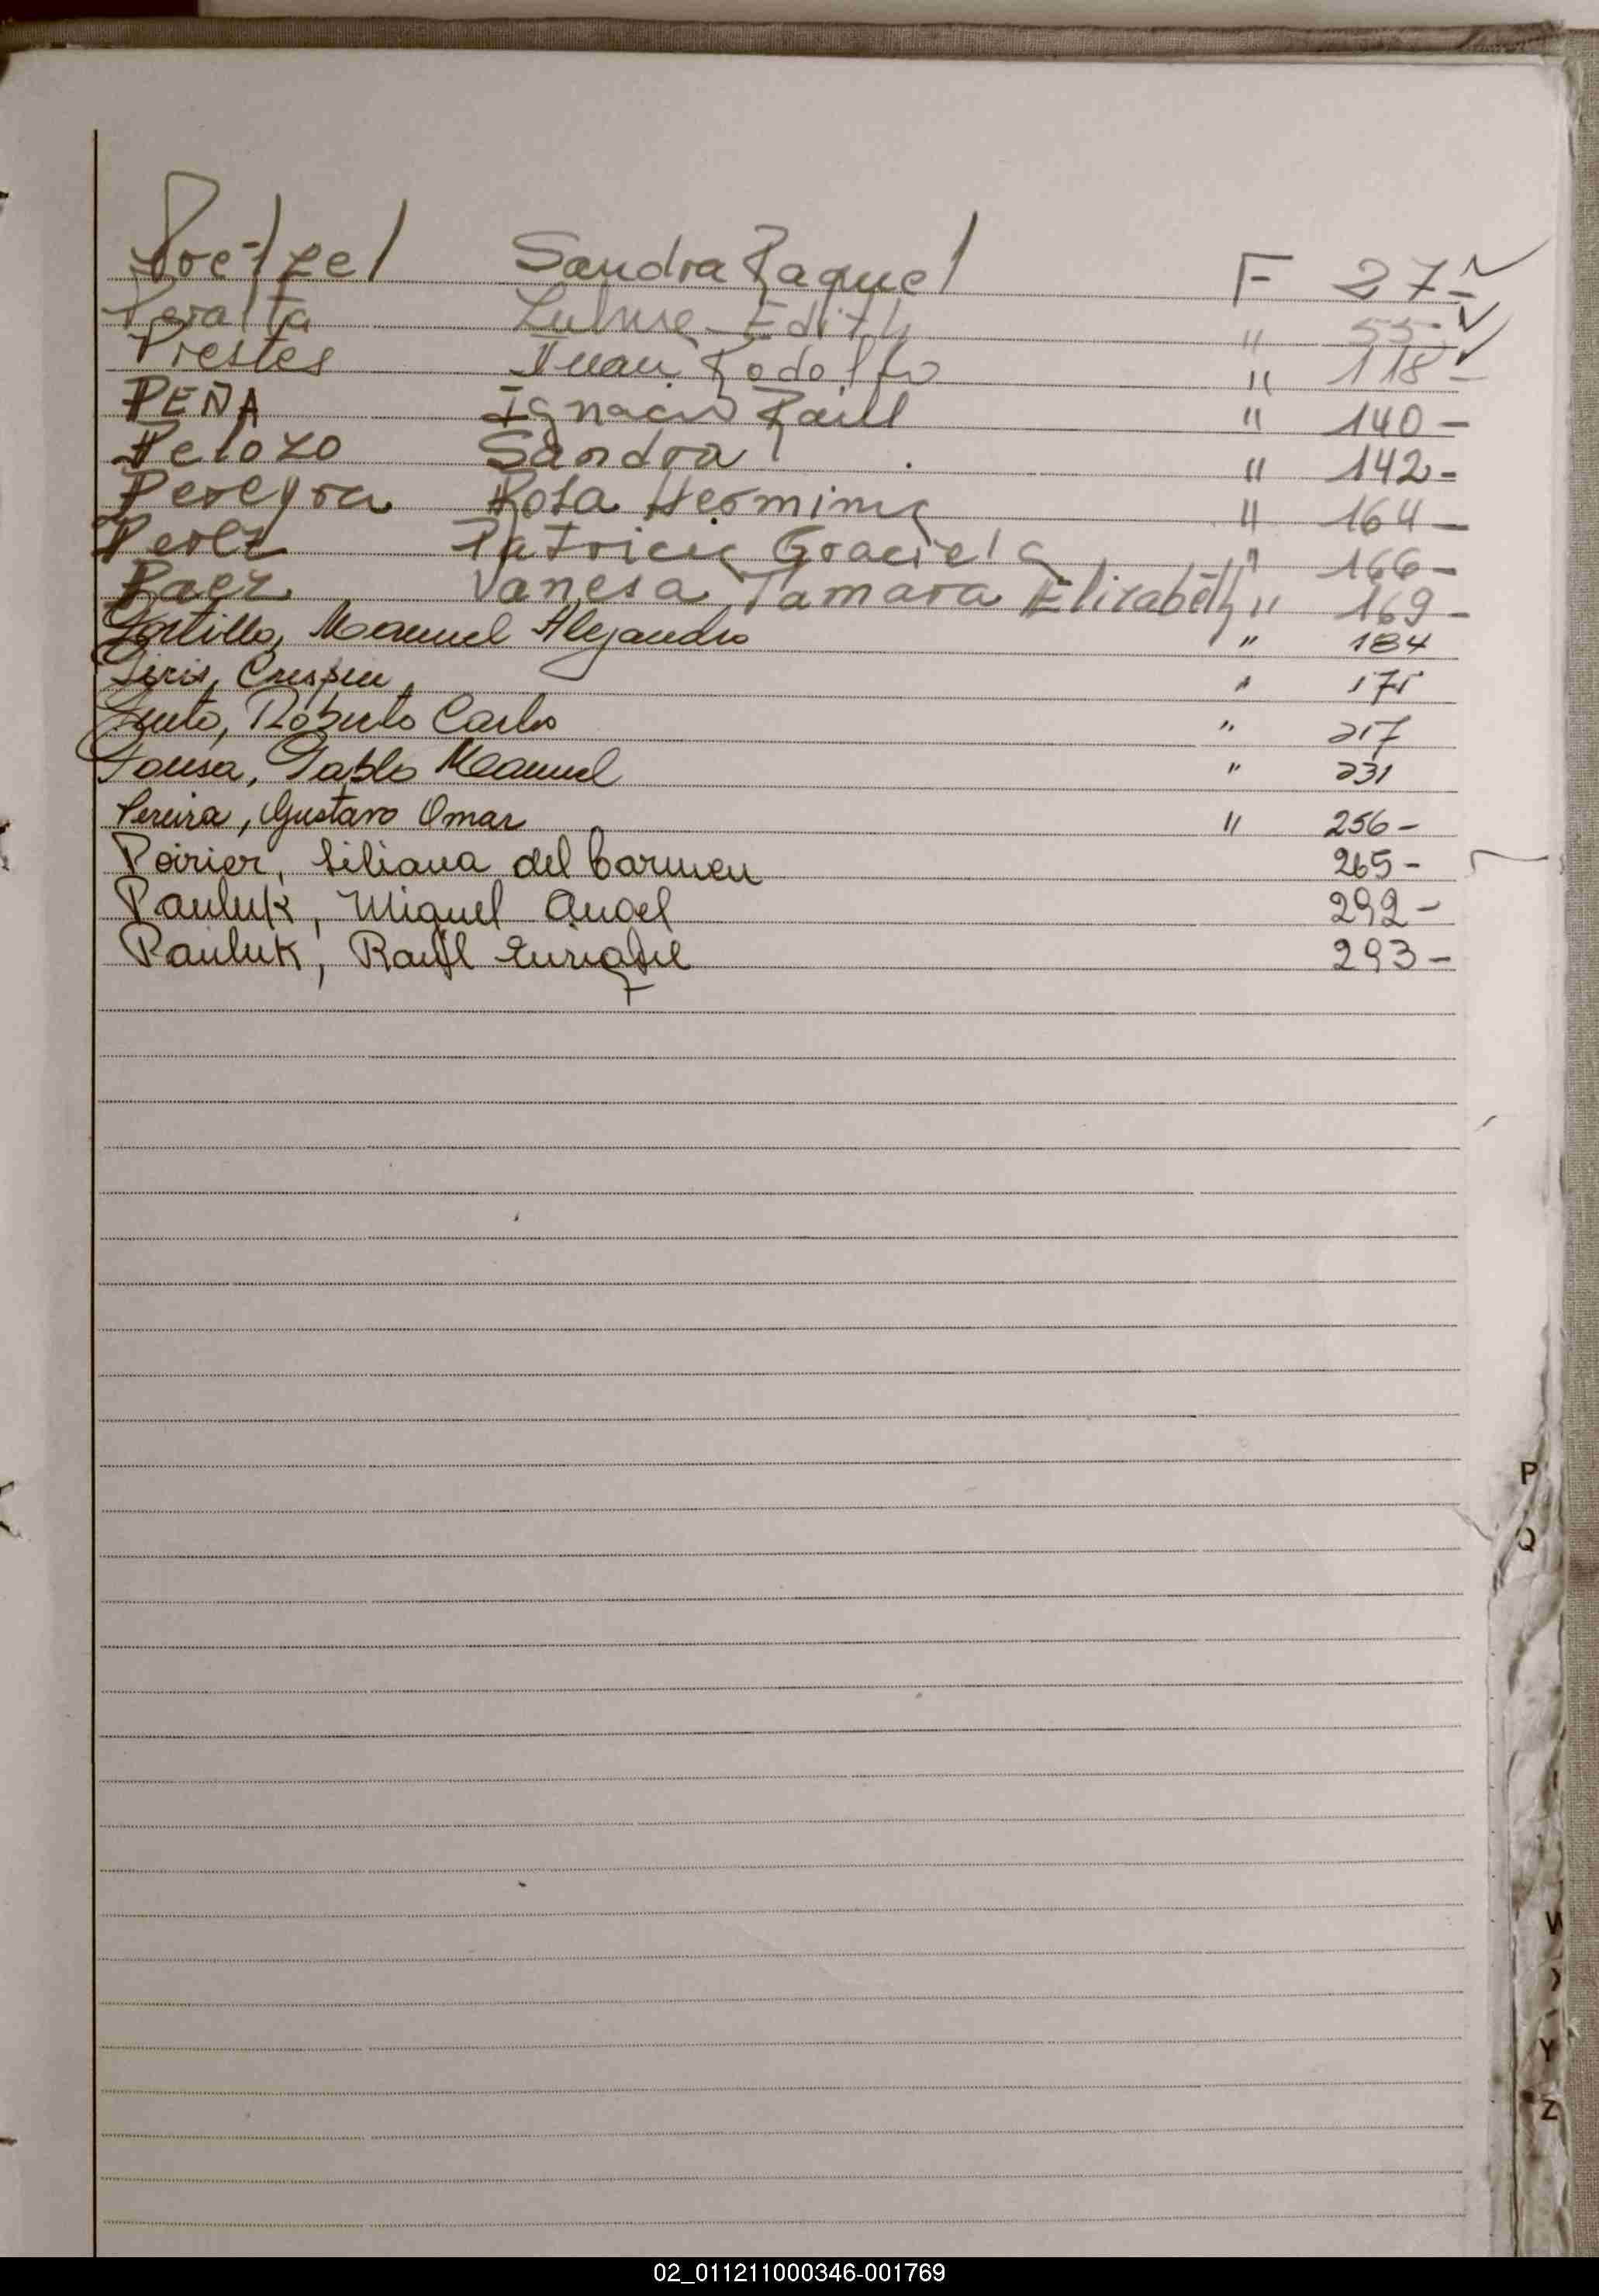 Proetzel Sandra Raquel F 27-
Peralta Edith " 55-
Prestes Juan Rodolfo " 118-
PEÑA Ignacio Raúl " 140-
Pelozo Sandra " 142-
Pereyra Rosa Herminia " 164-
Perez Patricia Graciela " 166-
Paez Vanesa Tamara Elizabeth " 169-
Portillo, Manuel Alejandro " 184
Piris, Crispin " 175
Roberto Carlos " 217
Pousa, Pablo Manuel " 231
Pereira, Gustavo Omar " 256-
Poirier, Liliana del Carmen 265-
Pauluk, Miguel Angel 292-
Pauluk, Raúl Enrique 293-
P
Q
W
X
Y
Z
02_011211000346-001769